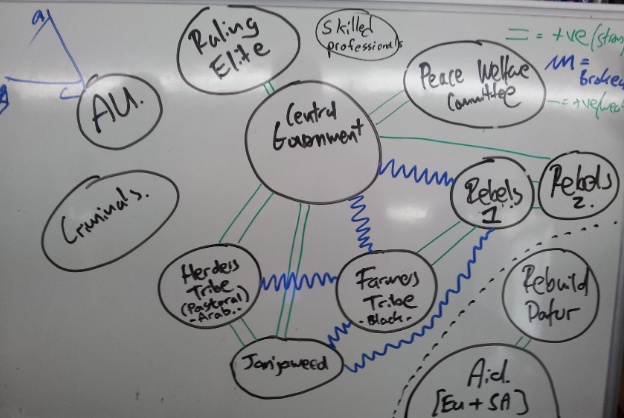 Ruling
Elite
Skilled
professionals
= = +ve (stron
= broken
- = +ve (weak
a
AU.
Central
Government
Peace Welfare
Committee
Criminals.
Rebels
1
Rebels
2.
Herders
Tribe
(Pastoral)
-Arab..
Farmers
Tribe
-Black-
Rebuild
Dafur
Janjaweed
Aid.
[Eu + SA]